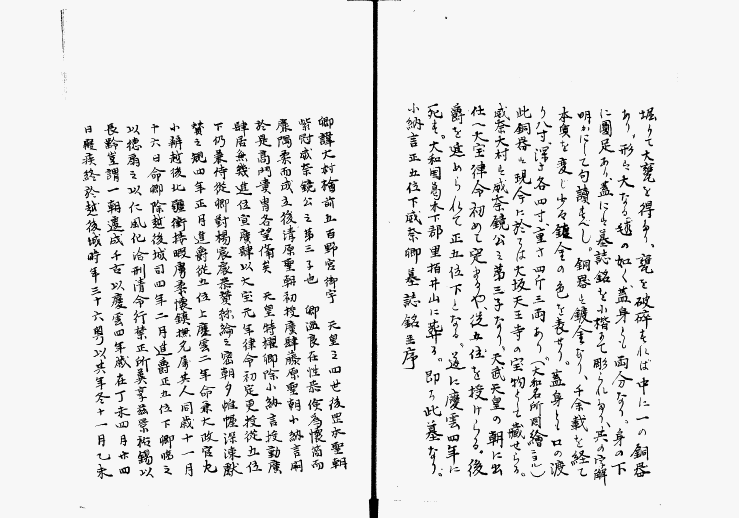 堀りて大甕を得たり、甕を破砕すれば中に一の銅器
あり、形は大なる毬の如く蓋身とも両分なり。身の下
に圓足あり蓋に墓誌銘を小楷にて彫られたり、其の字解
明かにして句讀すべし、銅器は鍍金なり、千余載を経て
本質を変じ少々鍍金の色を表せり。蓋身とも口の渡
り八寸深さ各四寸重さ四斤三両あり。(大和名所図繪ニヨル)
此銅器は現今に於ては大坂天王寺の宝物として蔵せらる。
威奈大村は威奈鏡公の第三子なり、天武天皇の朝に出
仕へ大宝律令初めて定まるや、従五位を授けらる。後
爵を進められて正五位下となる。遂に慶雲四年に
死す。大和国葛木下郡里狛井山に葬る。即ち此墓なり。
小納言正五位下威奈卿墓誌銘並序
卿諱大村檜前五百野宮御宇　天皇之四世後岡本聖朝
紫冠威奈鏡公之第三子也　卿温良在性恭倹為懐簡而
廉隅柔而成立後清原聖朝初授廣肆藤原聖朝小納言闕
於是高門貴冑各望備員　天皇特擢卿除小納言授勤廣
肆居無幾進位直廣肆以大宝元年律令初定更授従五位
下仍兼侍従卿對揚宸扆参賛絲綸之密朝夕帷幄深陳献
賛之規四年正月進爵従五位上慶雲二年命兼太政官左
小辨越後北疆衝接蝦虜柔懐鎮撫允属其人同歳十一月
十六日命卿除越後城司四年二月進爵正五位下卿臨之
以徳扇之以仁風化洽刑清令行禁正所冀享茲景祐錫以
長齢豈謂一朝遽成千古以慶雲四年歳在丁未四月廿四
日寝疾終於越後城時年三十六粤以其年冬十一月乙未